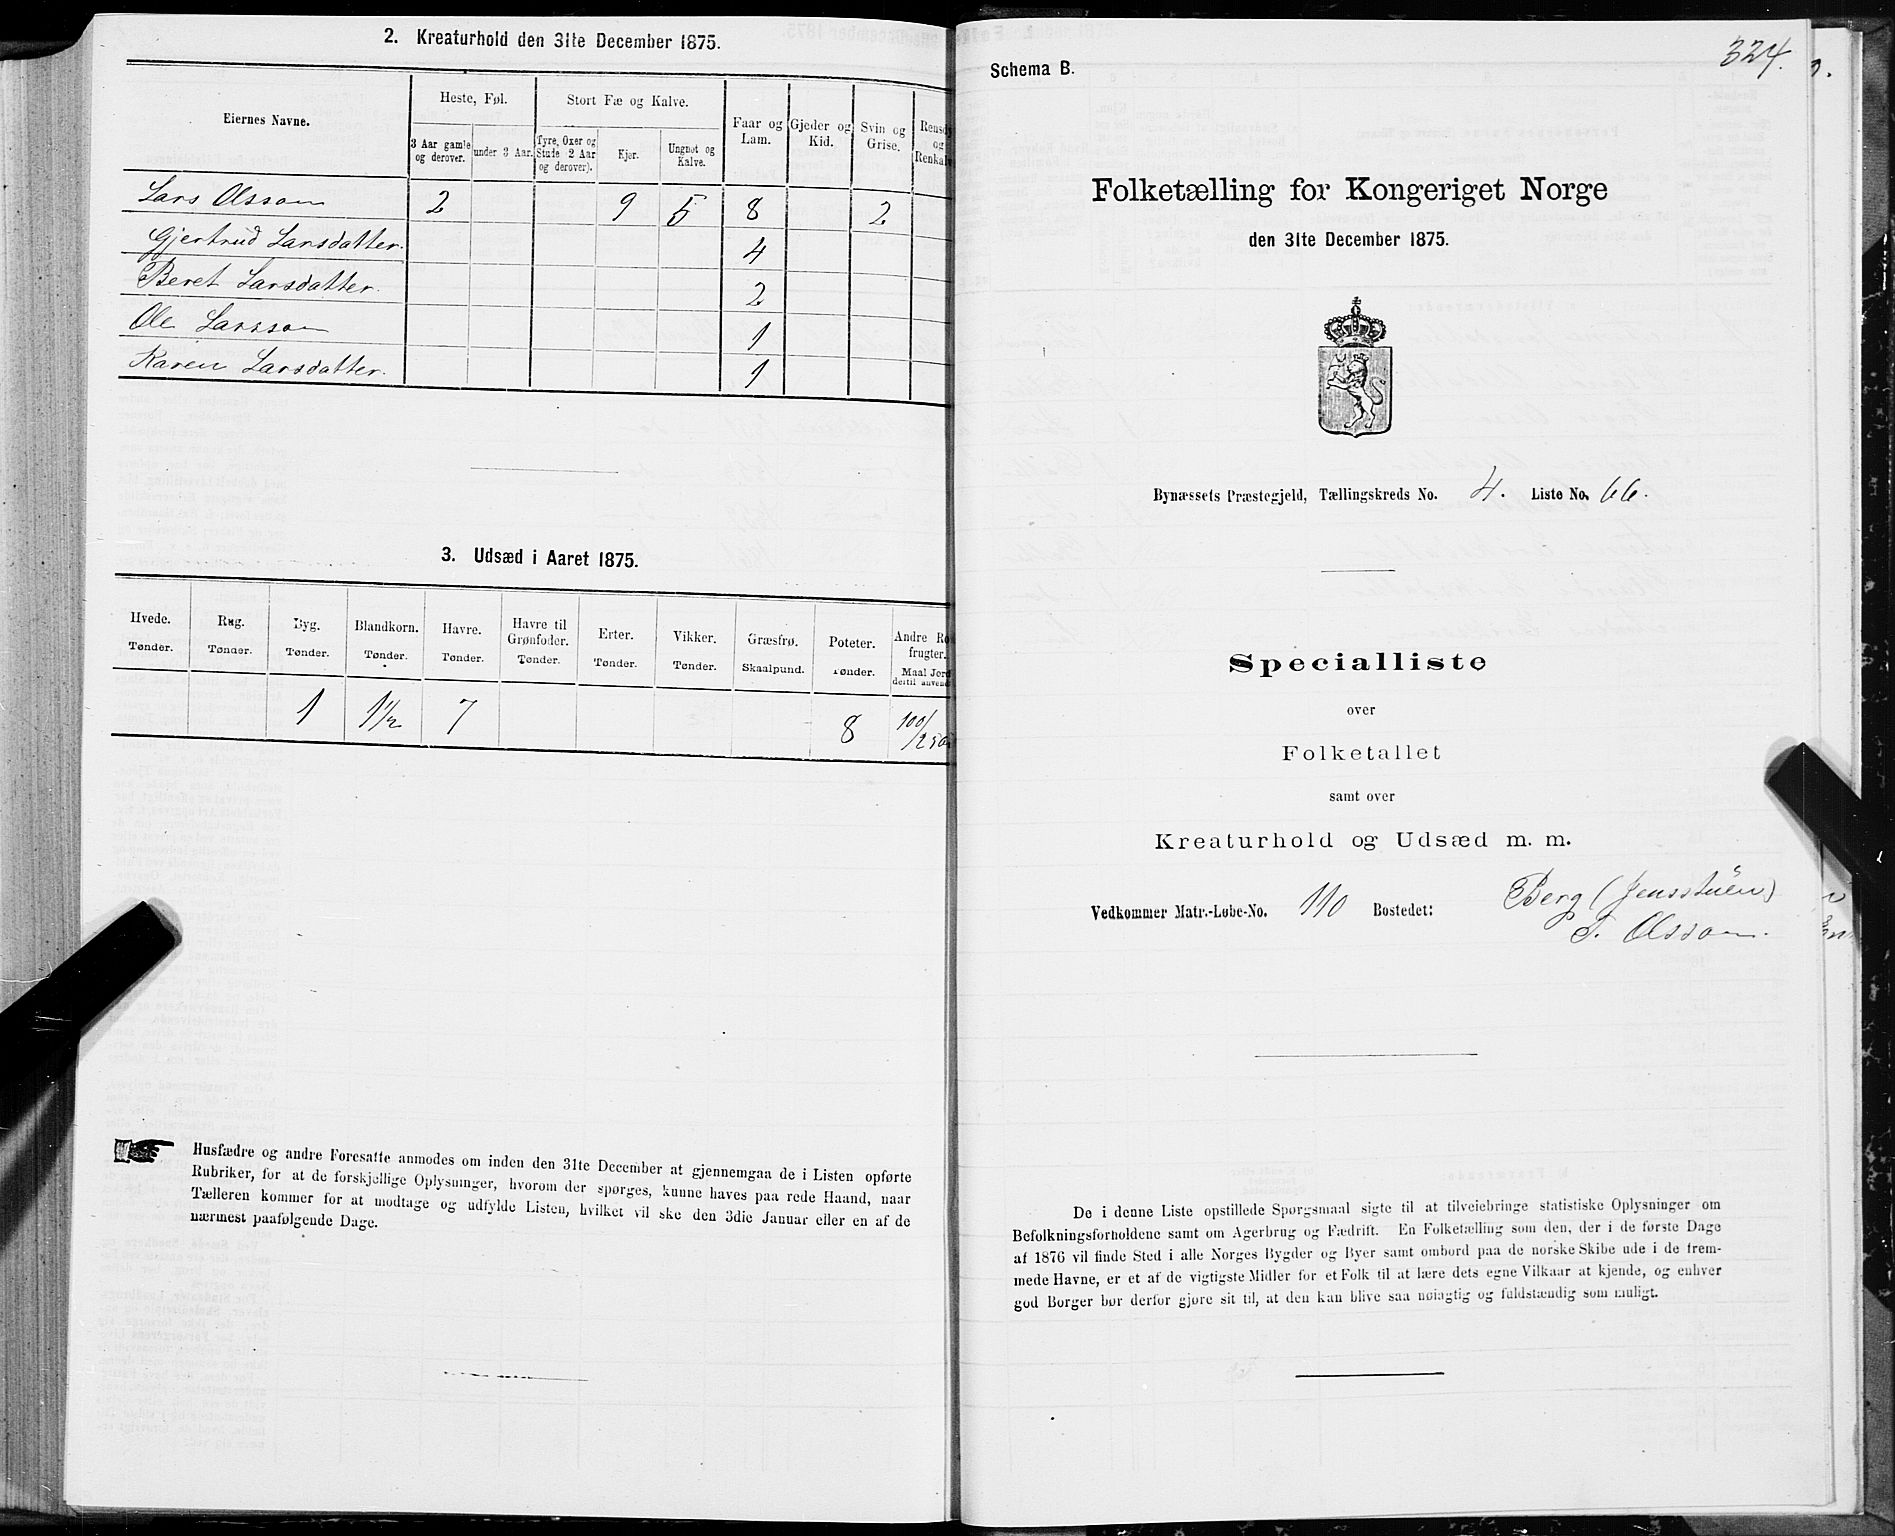 2. Kreaturhold den 31te December 1875.
Eiernes Navne.
Heste, Føl.
Stort Fæ og Kalve.
3 Aar gamle og derover.
under 3 Aar.
Tyre, Oxer og Stude 2 Aar og derover).
Kjør.
Ungnøt og Kalve.
Faar og Lam.
Gjeder og Kid.
Svin og Grise.
Rensdy
og
Renkal
Lars Olsson 2 9 5 8 2
Gjertrud Larsdatter. 4
Beret Larsdatter. 2
Ole Larsson 1
Karen Larsdatter. 1
3. Udsæd i Aaret 1875.
Hvede. Rug. Byg. Blandkorn. Havre. Havre til Grønfoder. Erter. Vikker. Græsfrø. Poteter. Andre Ro
frugter.
Tønder. Tønder. Tønder. Tønder. Tønder. Tønder. Tønder. Tønder. Skaalpund. Tønder. Maal Jord
dertil anvend
1 1 1/2 7 8 100/250
Husfædre og andre Foresatte anmodes om inden den 31te December at gjennemgaa de i Listen opførte
Rubriker, for at de forskjellige Oplysninger, hvorom der spørges, kunne haves paa rede Haand, naar
Tælleren kommer for at modtage og udfylde Listen, hvilket vil ske den 3die Januar eller en af de
nærmest paafølgende Dage.
324.
Schema B.
Folketælling for Kongeriget Norge
den 31te December 1875.
Bynæssets Præstegjeld, Tællingskreds No. 4. Liste No. 66.
Specialliste
over
Folketallet
samt over
Kreaturhold og Udsæd m. m.
Vedkommer Matr.-Løbe-No. 110 Bostedet: Berg (Jensstuen)
T. Olsson.
De i denne Liste opstillede Spørgsmaal sigte til at tilveiebringe statistiske Oplysninger om
Befolkningsforholdene samt om Agerbrug og Fædrift. En Folketælling som den, der i de første Dage
af 1876 vil finde Sted i alle Norges Bygder og Byer samt ombord paa de norske Skibe ude i de frem-
mede Havne, er et af de vigtigste Midler for et Folk til at lære dets egne Vilkaar at kjende, og enhver
god Borger bør derfor gjøre sit til, at den kan blive saa nøiagtig og fuldstændig som muligt.